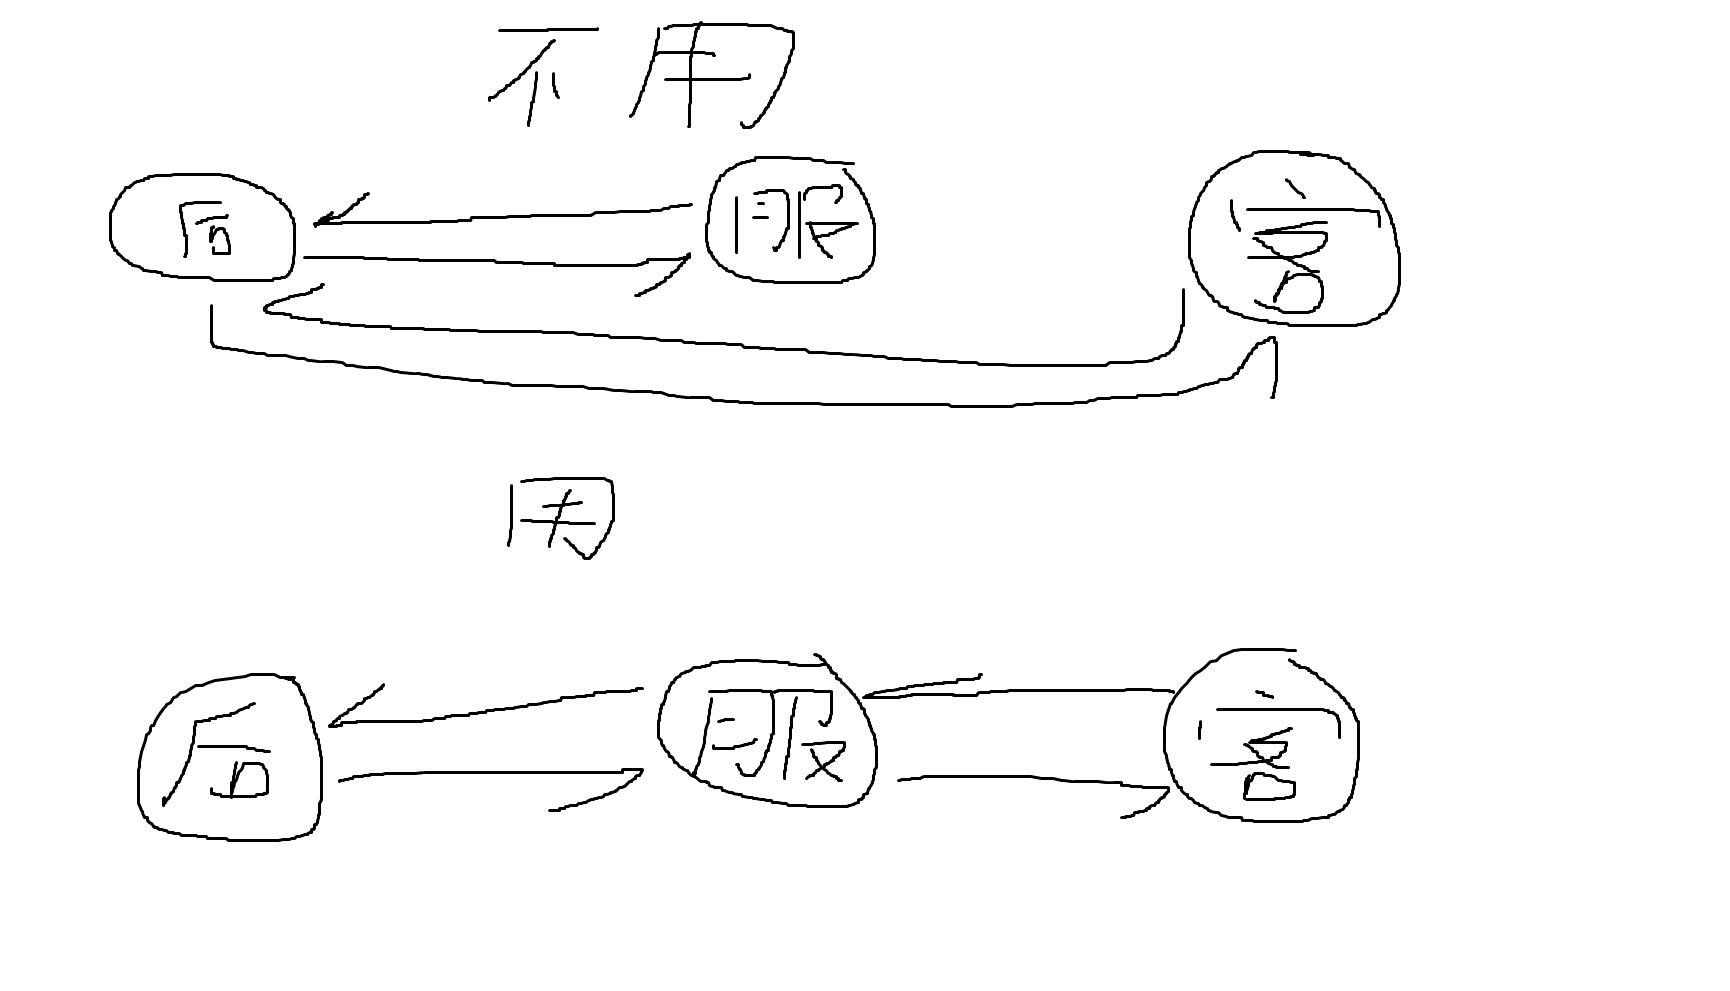 不用
后 服 客
用
后 服 客